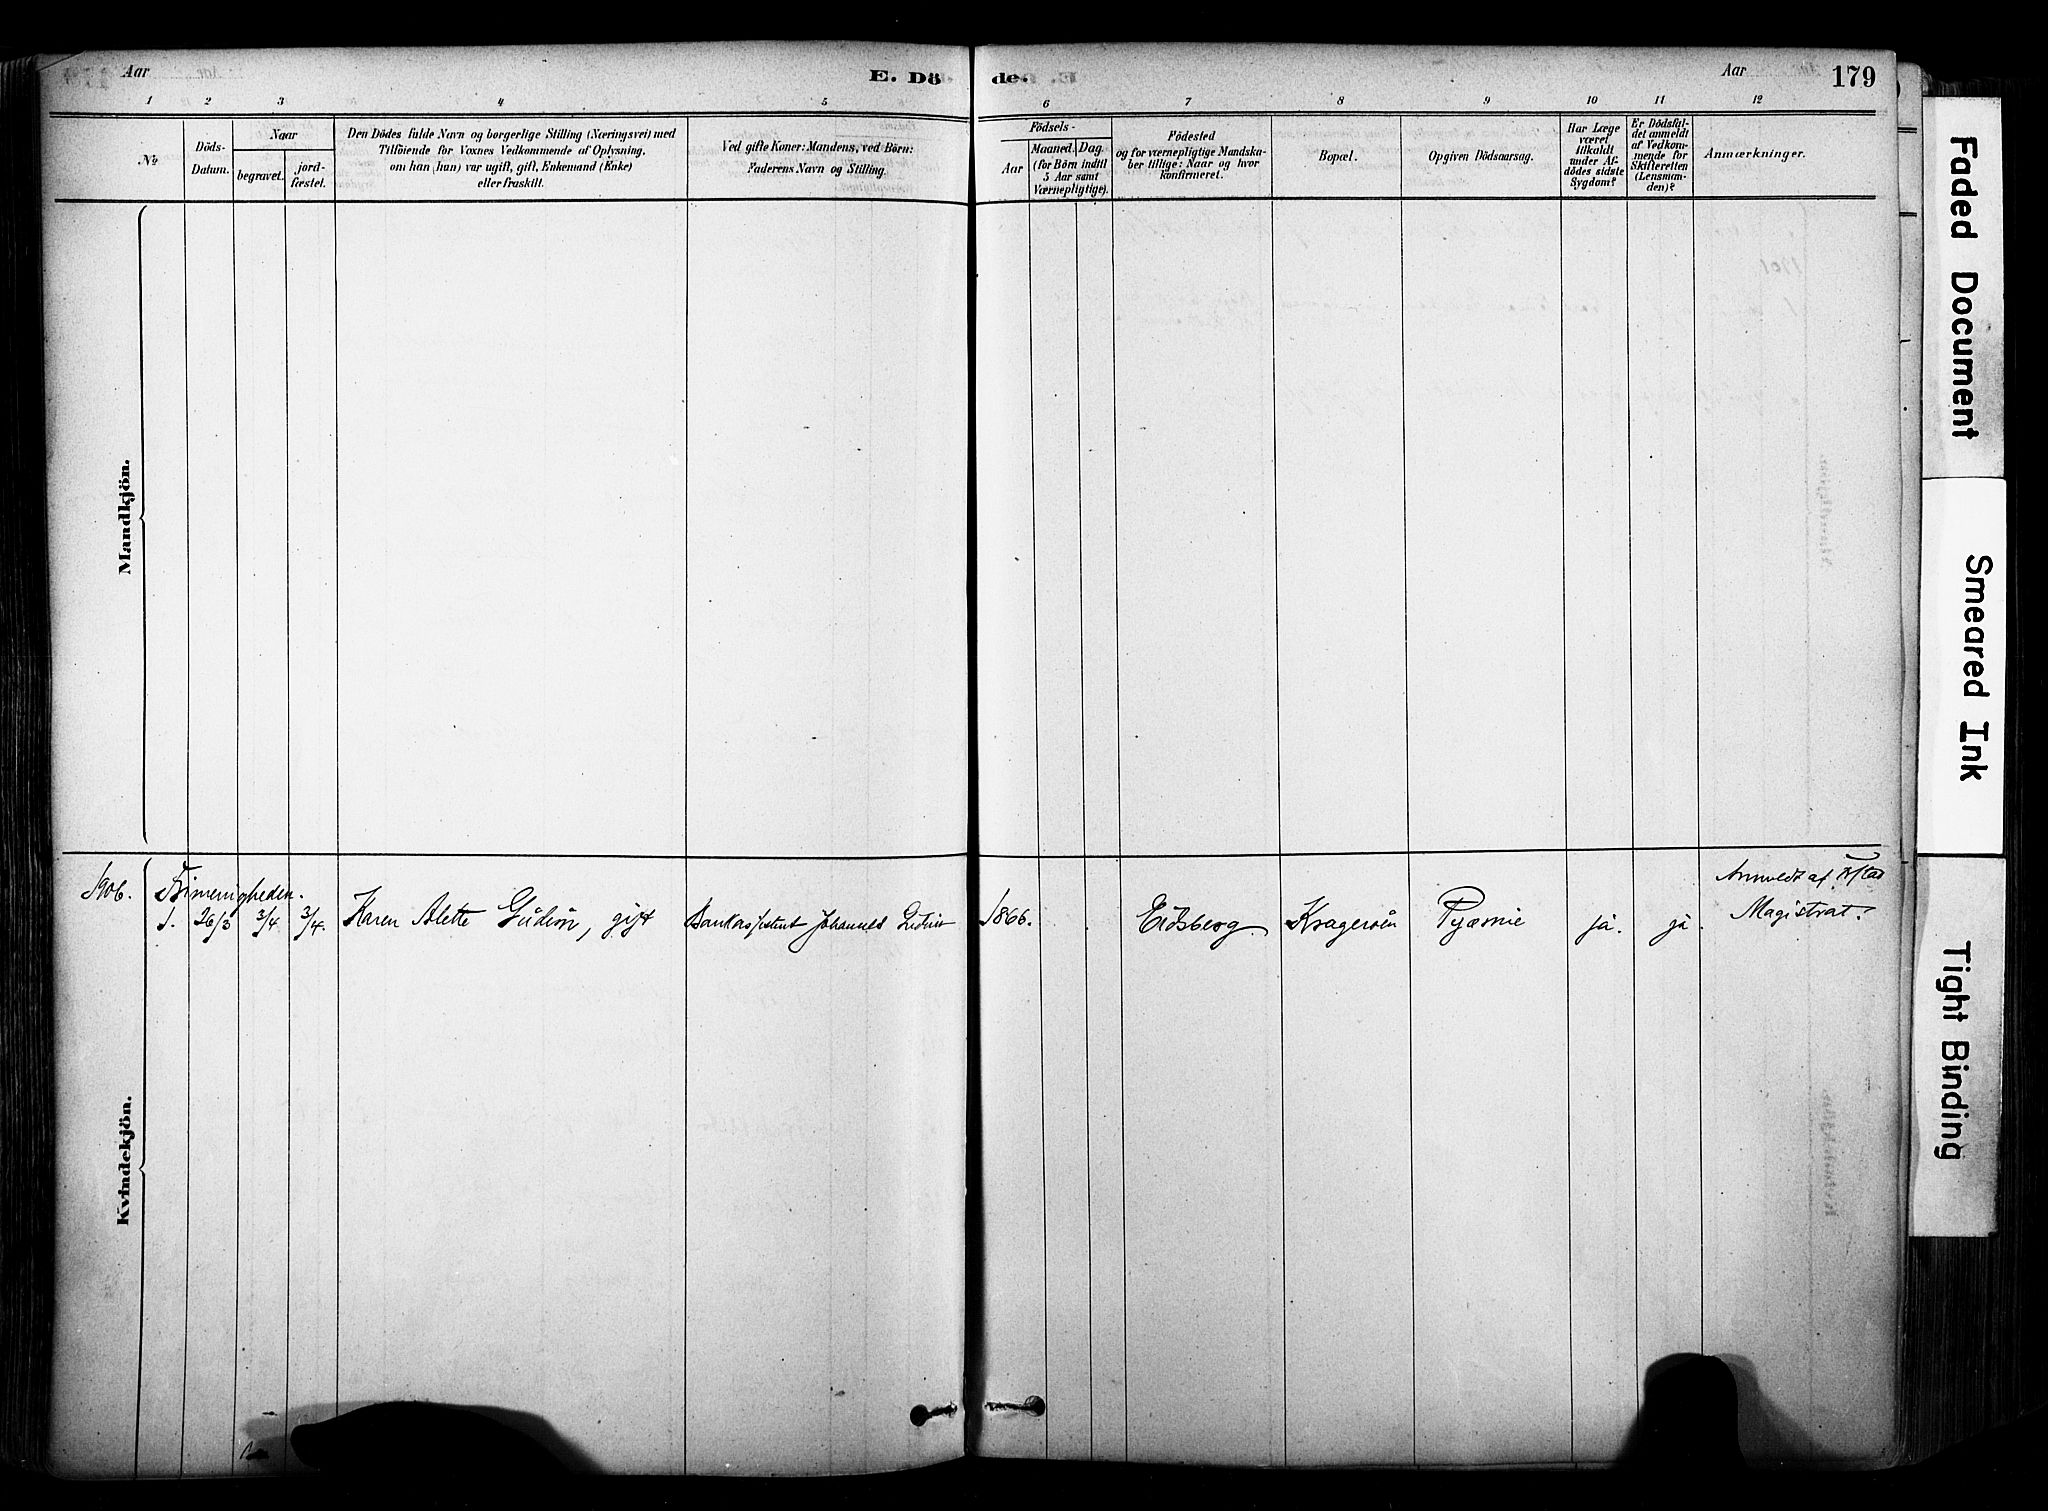 Aar
E. Dö
de.
Aar
179
1 2 3 4 5 6 7 8 9 10 11 12
No
Döds-
Datum.
Naar
begravet.
jord-
fæstet.
Den Dödes fulde Navn og borgerlige Stilling (Næringsvei) med
Tilföiende for Voxnes Vedkommende af Oplysning,
om han (hun) var ugift, gift, Enkemand (Enke)
eller fraskilt.
Ved gifte Koner: Mandens, ved Börn:
Faderens Navn og Stilling.
Födsels-
Aar
Maaned.
Dag.
(for Börn indtil
5 Aar samt
Værnepligtige).
Födested
og for værnepligtige Mandska-
ber tillige: Naar og hvor
konfirmeret.
Bopæl.
Opgiven Dödsaarsag.
Har Læge
været
tilkaldt
under Af-
dödes sidste
Sygdom?
Er Dödsfal-
det anmeldt
af Vedkom-
mende for
Skifteretten
(Lensman-
den)?
Anmærkninger.
Mandkjön.
Kvindekjön.
1906.
Frimenigheden.
1. 26/3 3/4 3/4. Karen Alette , gift Johannes 1866. Eidsberg Kragerøen Pyæmie ja. ja.
Anmeldt af
Magistrat.
Faded Document
Smeared Ink
Tight Binding